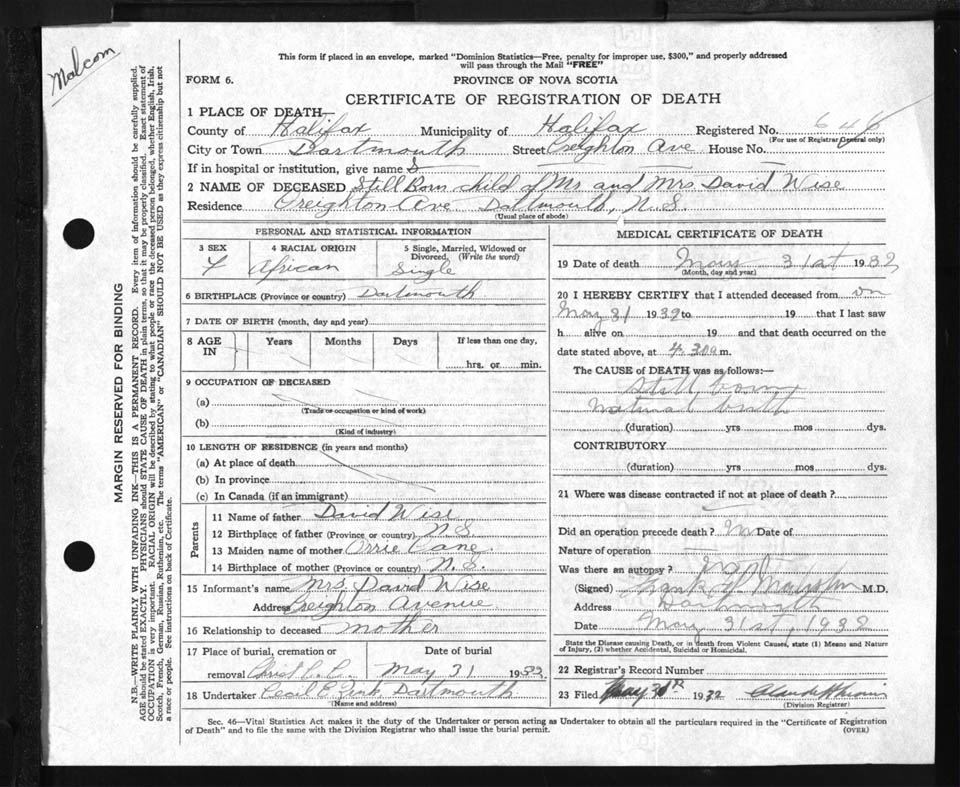 Malcom
This form if placed in an envelope, marked "Dominion Statistics—Free, penalty for improper use, $300," and properly addressed
will pass through the Mail "FREE"
FORM 6.
PROVINCE OF NOVA SCOTIA
CERTIFICATE OF REGISTRATION OF DEATH
1 PLACE OF DEATH—
County of Halifax Municipality of Halifax Registered No. 646
(For use of Registrar General only)
City or Town Dartmouth Street Creighton Ave House No.
If in hospital or institution, give name
2 NAME OF DECEASED Still Born child of Mr and Mrs David Wise
Residence Creighton Ave Dartmouth, N.S.
(Usual place of abode)
PERSONAL AND STATISTICAL INFORMATION
3 SEX 4 RACIAL ORIGIN 5 Single, Married, Widowed or
Divorced. (Write the word)
F African Single
6 BIRTHPLACE (Province or country) Dartmouth
7 DATE OF BIRTH (month, day and year)
8 AGE IN Years Months Days If less than one day,
hrs. or min.
9 OCCUPATION OF DECEASED
(a)
(Trade or occupation or kind of work)
(b)
(Kind of industry)
10 LENGTH OF RESIDENCE (in years and months)
(a) At place of death
(b) In province
(c) In Canada (if an immigrant)
Parents
11 Name of father David Wise
12 Birthplace of father (Province or country) N.S.
13 Maiden name of mother Orrie Cane
14 Birthplace of mother (Province or country) N.S.
15 Informant's name Mrs. David Wise
Address Creighton Avenue
16 Relationship to deceased mother
17 Place of burial, cremation or Date of burial
removal Christ C. C. May 31 1932
18 Undertaker Cecil E. Zink Dartmouth
(Name and address)
MEDICAL CERTIFICATE OF DEATH
19 Date of death May 31st 1932
(Month, day and year)
20 I HEREBY CERTIFY that I attended deceased from on
May 31 1932 to 19 that I last saw
h alive on 19 and that death occurred on the
date stated above, at 4.30a m.
The CAUSE of DEATH was as follows:—
Still born
(duration) yrs mos dys.
CONTRIBUTORY
(duration) yrs mos dys.
21 Where was disease contracted if not at place of death?
Did an operation precede death? No Date of
Nature of operation
Was there an autopsy?
(Signed) Frank M.D.
Address Dartmouth
Date May 31st, 1932
State the Disease causing Death, or in Death from Violent Causes, state (1) Means and Nature
of Injury, (2) whether Accidental, Suicidal or Homicidal.
22 Registrar's Record Number
23 Filed May 1932
(Division Registrar)
Sec. 46—Vital Statistics Act makes it the duty of the Undertaker or person acting as Undertaker to obtain all the particulars required in the "Certificate of Registration
of Death" and to file the same with the Division Registrar who shall issue the burial permit.
(OVER)
MARGIN RESERVED FOR BINDING
N.B.—WRITE PLAINLY WITH UNFADING INK—THIS IS A PERMANENT RECORD. Every item of information should be carefully supplied.
AGE should be stated EXACTLY. PHYSICIANS should STATE CAUSE OF DEATH in plain terms, so that it may be properly classified. Exact statement of
OCCUPATION is very important. RACIAL ORIGIN will be described by stating to what people or race the deceased person belonged, whether English, Irish,
Scotch, French, German, Russian, Ruthenian, etc. The terms "AMERICAN" or "CANADIAN" SHOULD NOT BE USED as they express citizenship but not
a race or people. See instructions on back of Certificate.